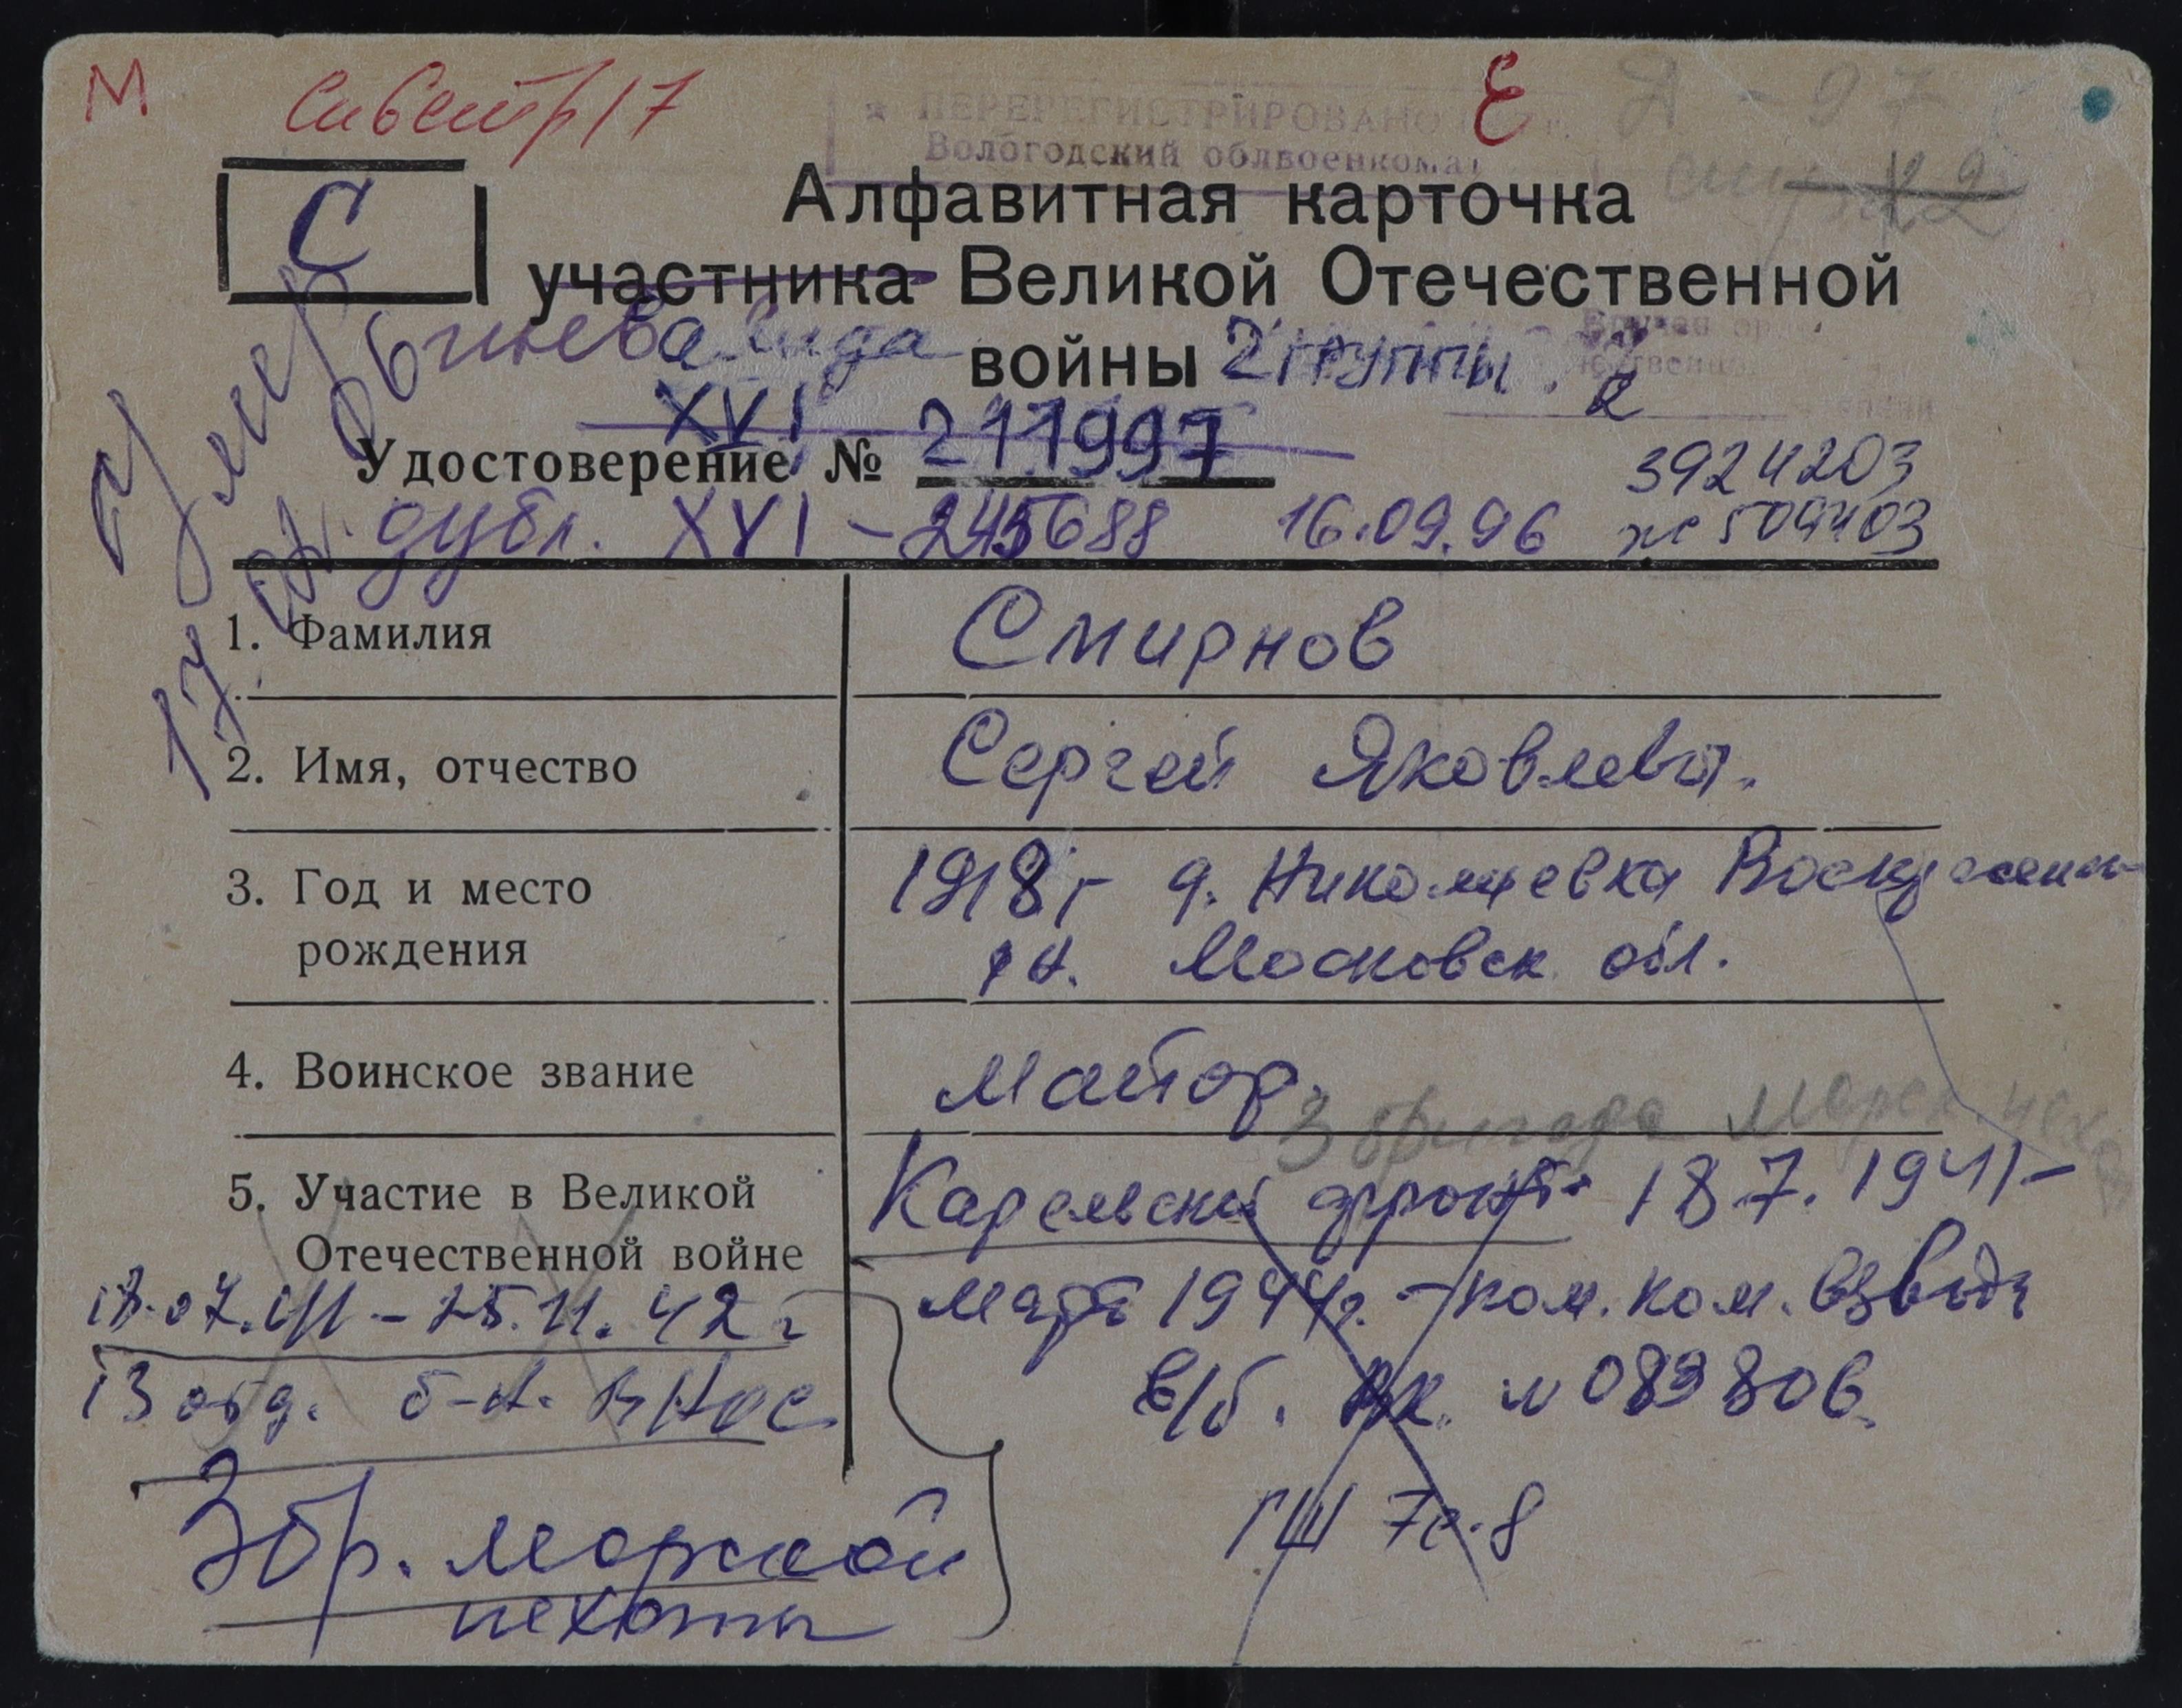 М
Е
ПЕРЕРЕГИСТРИРОВАНО
Вологодский облвоенкомат
С
Алфавитная карточка
участника Великой Отечественной
инвалида войны 2 группы
XVI
Удостоверение № 211997
3924203
дубл. XVI - 245688 16.09.96 509403
умер
1. Фамилия Смирнов
2. Имя, отчество Сергей Яковлев.
3. Год и место рождения
1918г д. Николаевка
рн. Московск обл.
4. Воинское звание майор
3 бригада Морск. пехоты
5. Участие в Великой Отечественной войне
Карельский фронт 18 7. 1941-
март 1944г. - ком. взвода
в/б. № 083806.
ГШ
.07.41 - 25.11.42г
13 отд. б-н. ВНОС
3 бр. морской
пехоты